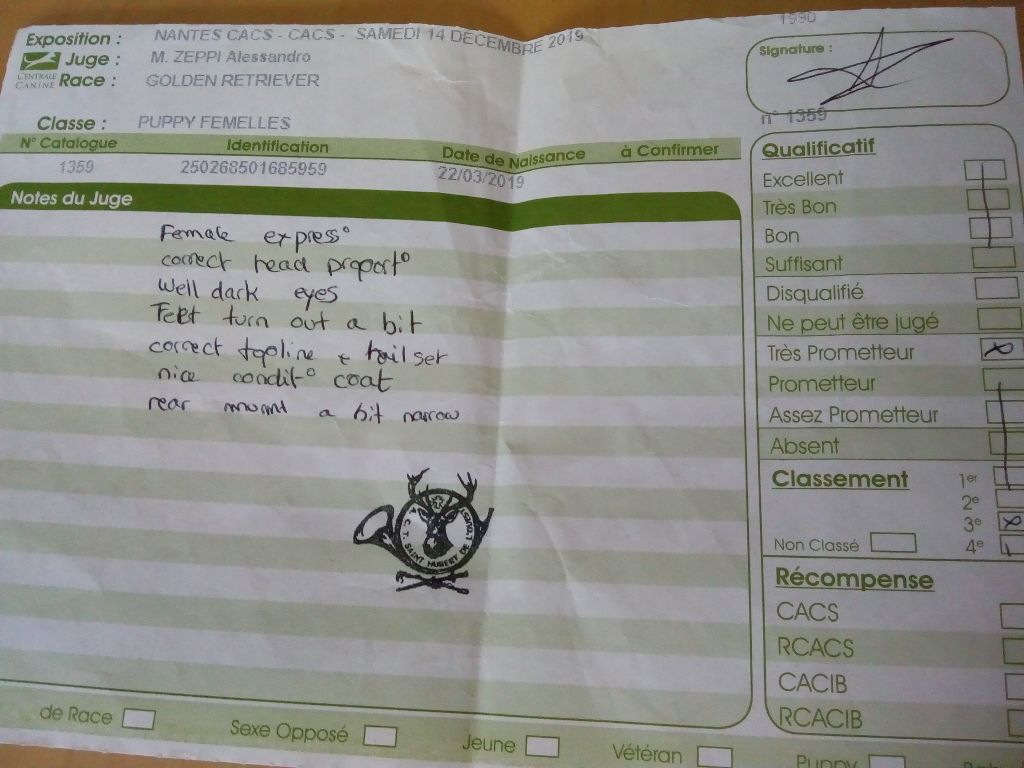 1990
Exposition : NANTES CACS - CACS - SAMEDI 14 DECEMBRE 2019
Juge : M. ZEPPI Alessandro
CENTRALE CANINE
Race : GOLDEN RETRIEVER
Signature :
Classe : PUPPY FEMELLES
n° 1359
N° Catalogue Identification Date de Naissance à Confirmer
1359 250268501685959 22/03/2019
Notes du Juge
Female express°
correct head proport°
Well dark eyes
Feet turn out a bit
correct topline & tail set
nice condit° coat
rear a bit narrow
A. C. T. SAINT HUBERT DE
Qualificatif
Excellent
Très Bon
Bon
Suffisant
Disqualifié
Ne peut être jugé
Très Prometteur x
Prometteur
Assez Prometteur
Absent
Classement 1er
2e
3e x
Non Classé 4e
Récompense
CACS
RCACS
CACIB
RCACIB
de Race Sexe Opposé Jeune Vétéran Puppy